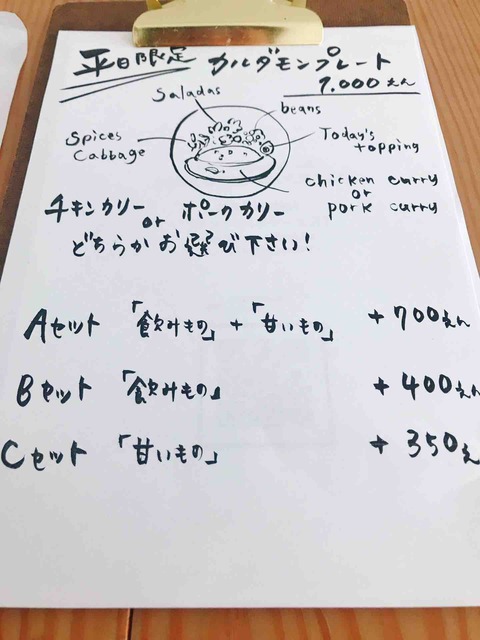 平日限定 カルダモンプレート
1,000えん
Saladas
beans
Spices
Cabbage
Today's
topping
chicken curry
or
pork curry
チキンカリー or ポークカリー
どちらかお選び下さい!
Aセット 「飲みもの」+「甘いもの」 +700えん
Bセット 「飲みもの」 +400えん
Cセット 「甘いもの」 +350え